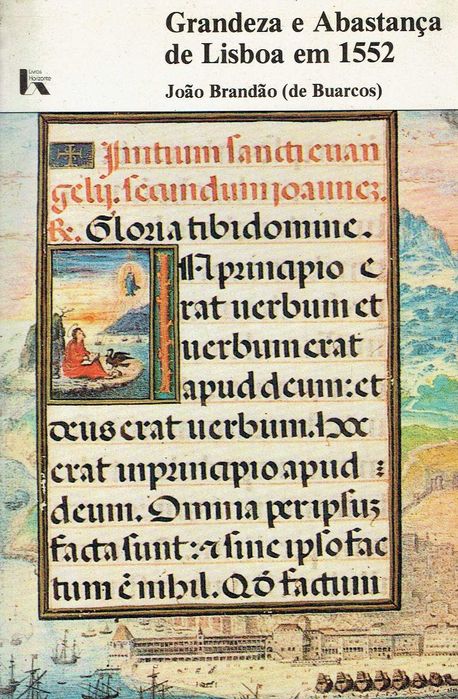 Grandeza e Abastança
de Lisboa em 1552
João Brandão (de Buarcos)
Livros
Horizonte
Initium sancti euan
gelij. secundum joannez.
R. Gloria tibi domine.
In principio e
rat uerbum et
uerbum erat
apud deum: et
deus erat uerbum. hoc
erat in principio apud
deum. Omnia per ipsuz
facta sunt: ⁊ sine ipso fac
tum ē nihil. Qđ factum